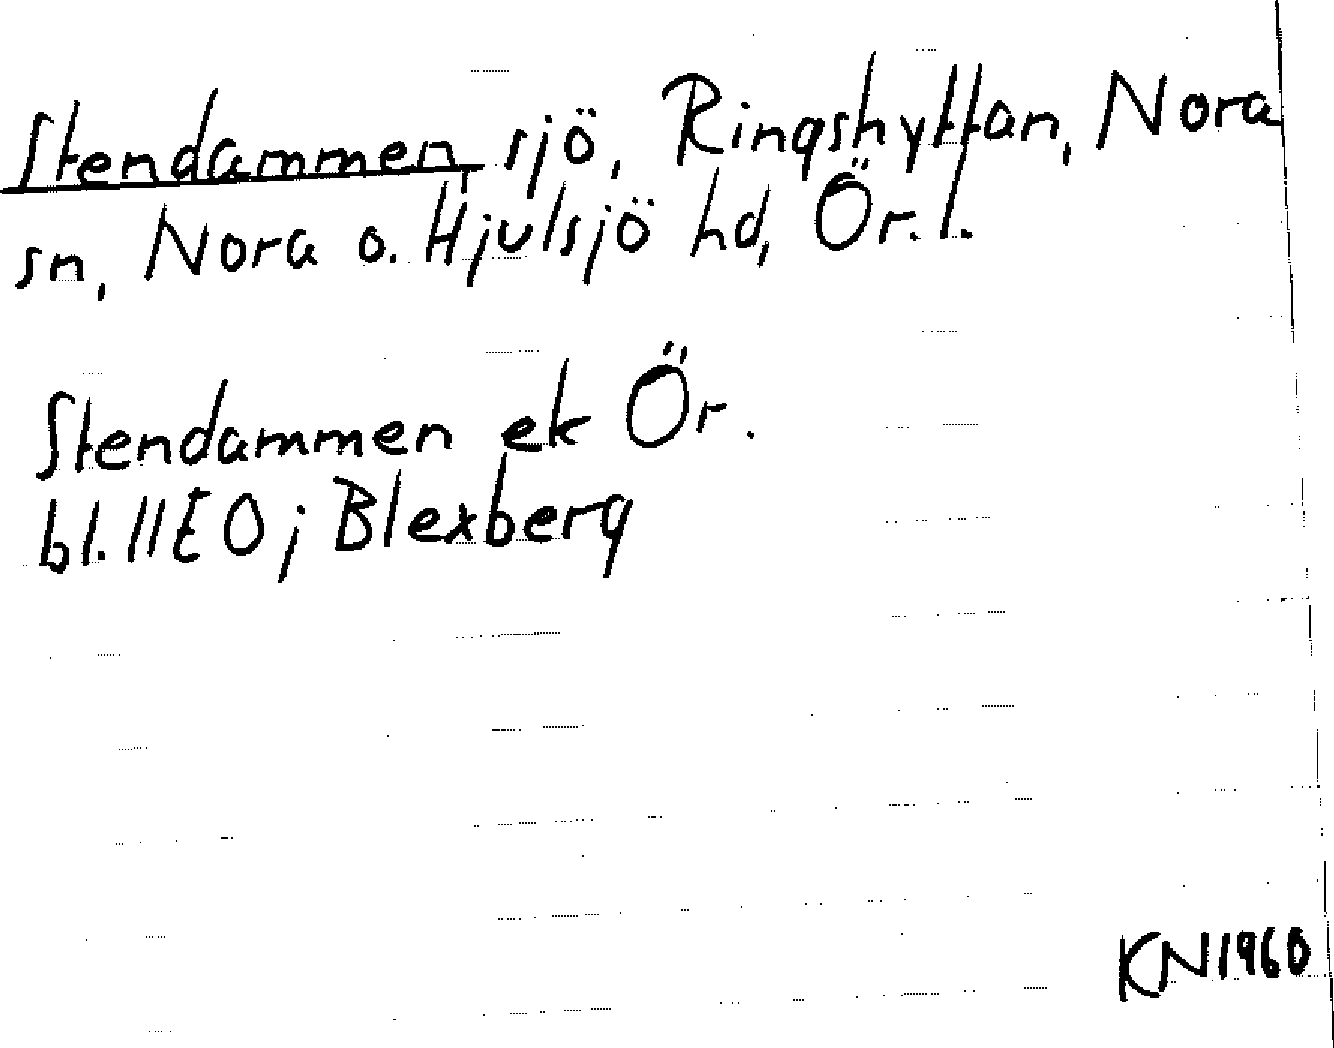 Stendammen, sjö, Ringshyttan, Nora
sn, Nora o. Hjulsjö hd, Ör. l.
Stendammen ek Ör.
bl. 11E0; Blexberg
KN1960